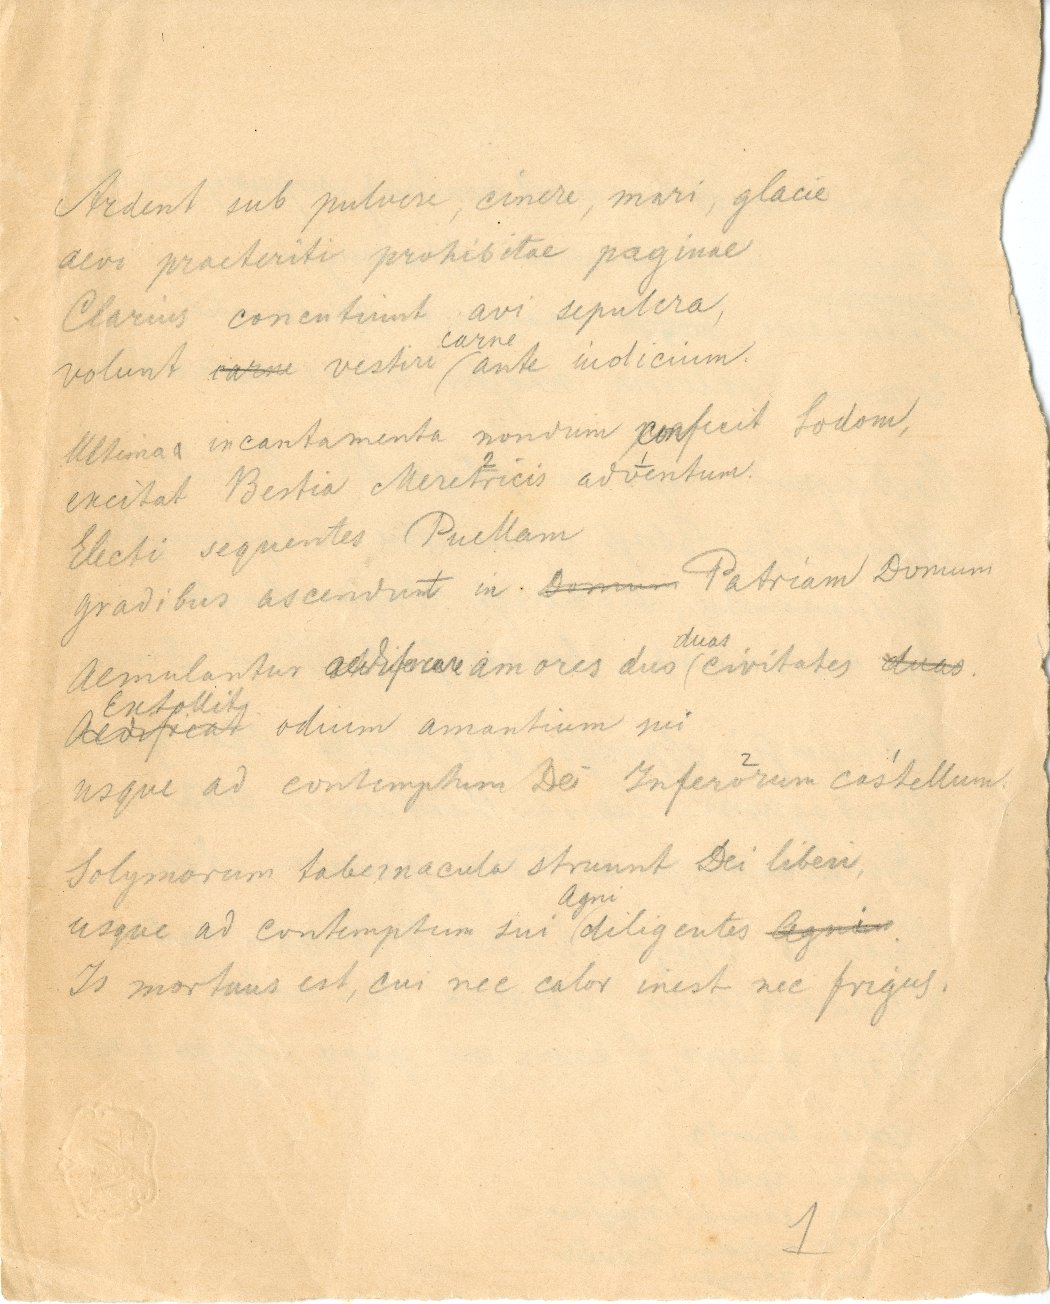 Ardent sub pulvere, cinere, mari, glacie
aevi praeteriti prohibitae paginae
Clarius concutiunt avi sepulcra,
carne
volunt carne vestiri ante iudicium.
Ultima incantamenta nondum conficit Sodom,
excitat Bestia Meretricis adventum.
2 1
Electi sequentes Puellam
gradibus ascendunt in Domum Patriam Domum
duas
Aemulantur aedificare amores duo civitates duas.
Extollit
Aedificat odium amantium sui
2 1
usque ad contemptum Dei Inferorum castellum.
Solymorum tabernacula struunt Dei liberi,
Agni
usque ad contemptum sui diligentes Agni.
Is mortuus est, cui nec calor inest nec frigus.
1